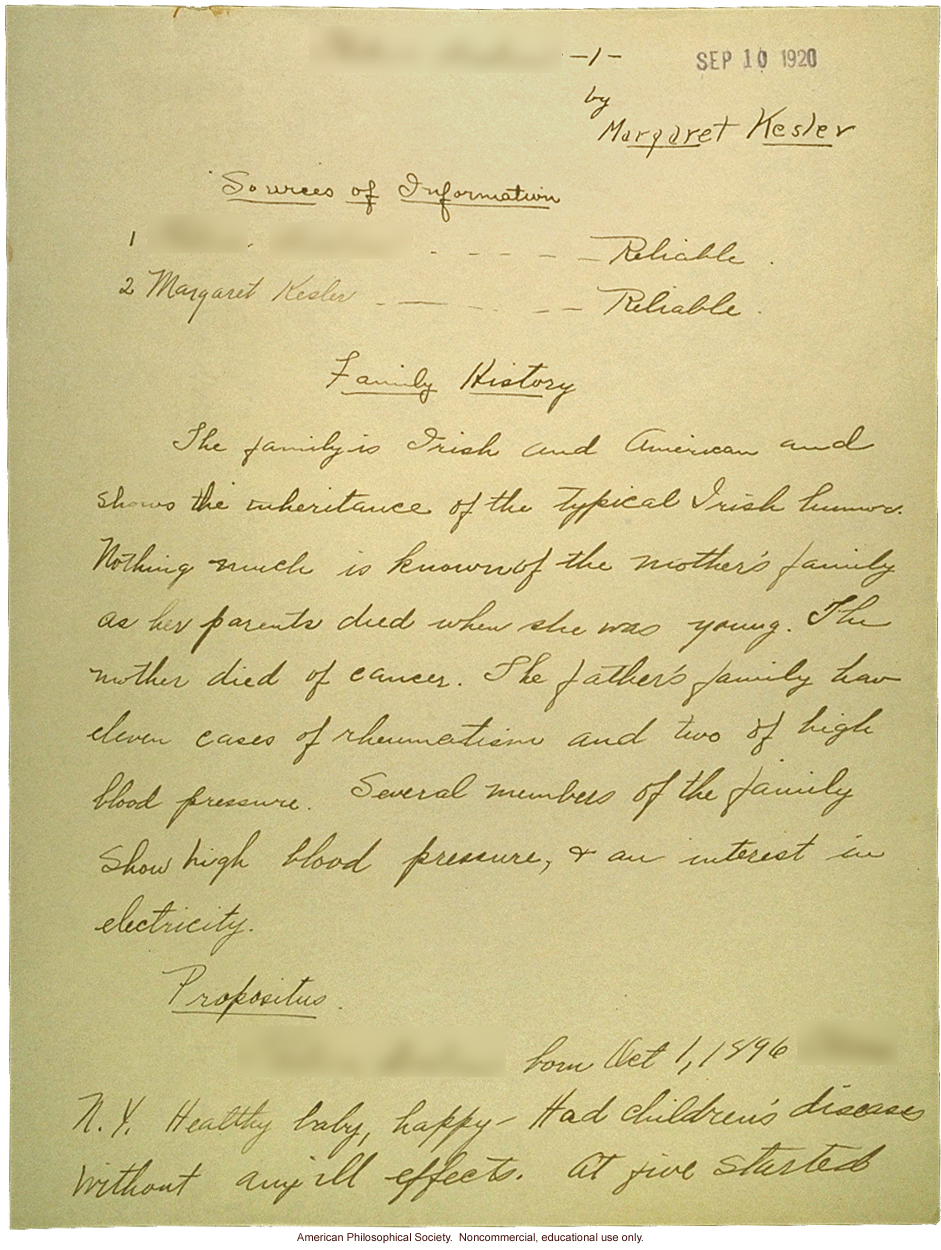 -1-
SEP 10 1920
by
Margaret Kesler
Sources of Information
1 - - - - - Reliable.
2 Margaret Kesler - - - - - Reliable.
Family History
The family is Irish and American and
shows the inheritance of the typical Irish humor.
Nothing much is known of the mother's family
as her parents died when she was young. The
mother died of cancer. The father's family have
eleven cases of rheumatism and two of high
blood pressure. Several members of the family
show high blood pressure, & an interest in
electricity.
Propositus.
born Oct 1, 1896
N.Y. Healthy baby, happy- Had children's diseases
without any ill effects. At five started
American Philosophical Society. Noncommercial, educational use only.